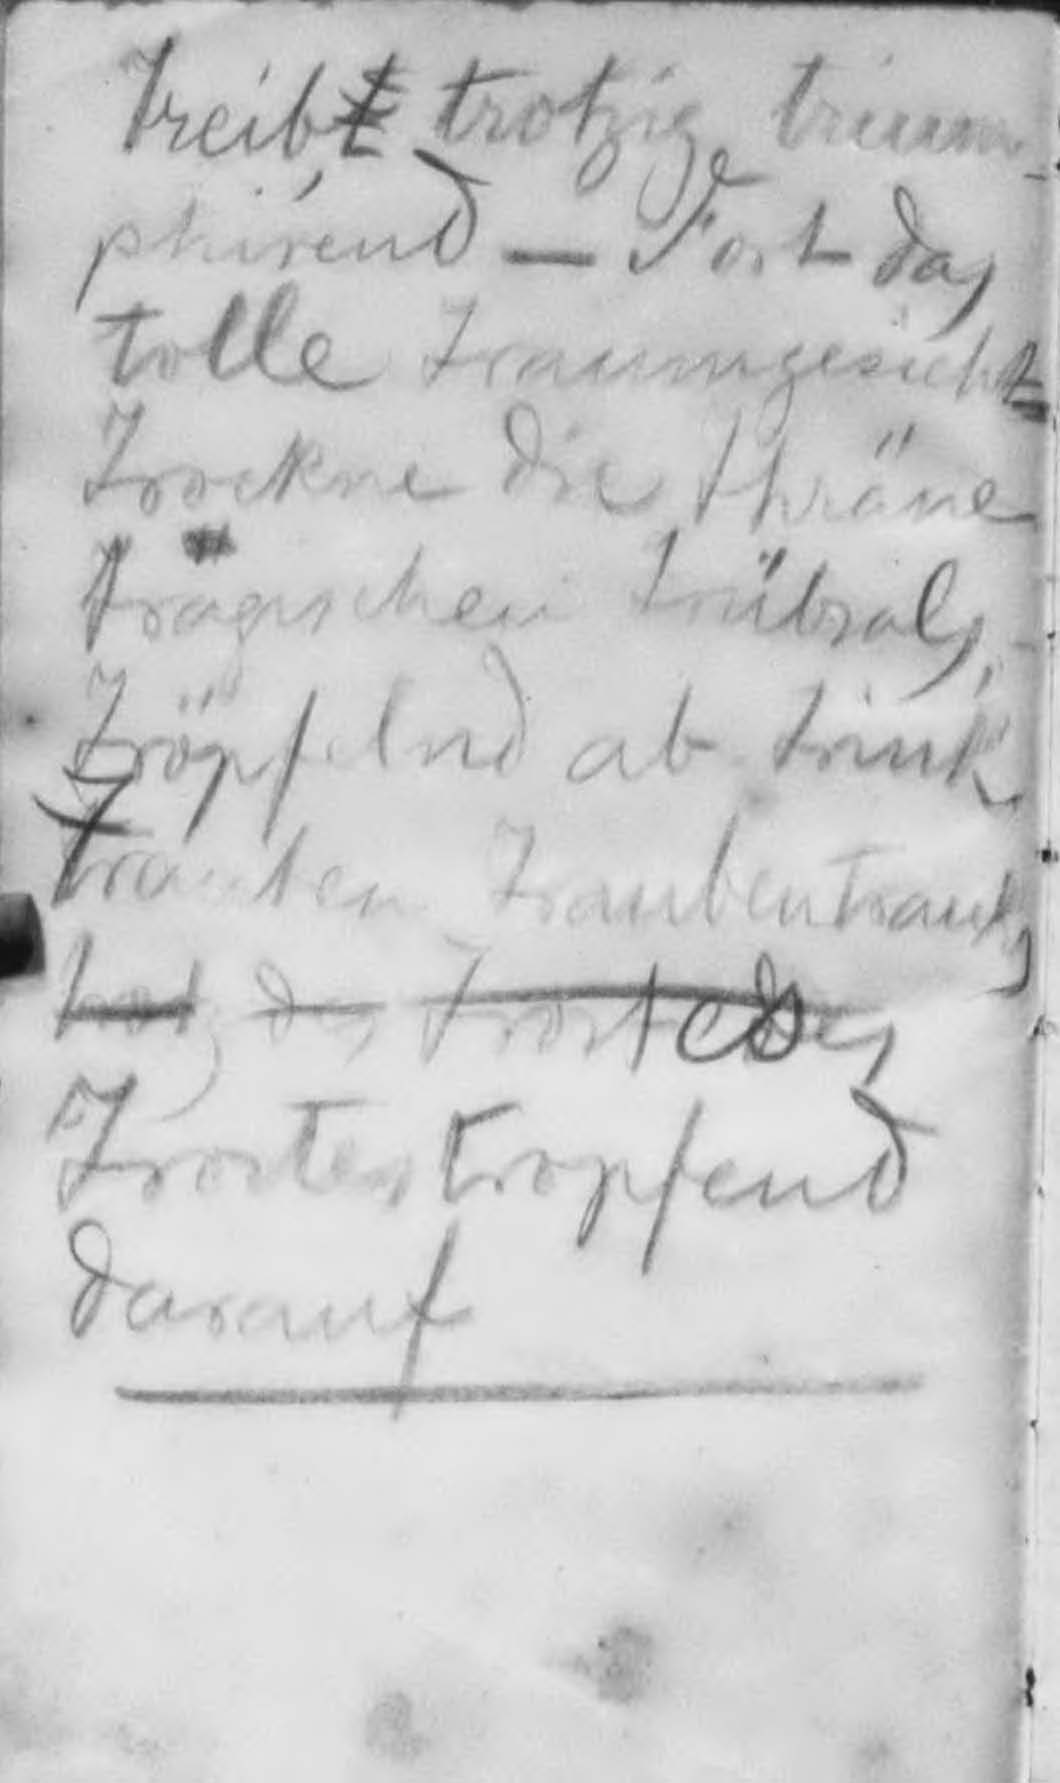 Treibt trotzig trium-
phirend — Fort das
tolle Traumgesicht
Trockne die thräne
tragischen Trübsals,
Tröpfelnd ab trink
Trauten Traubentrank,
trotz des Trostes
Trostes tropfend
darauf